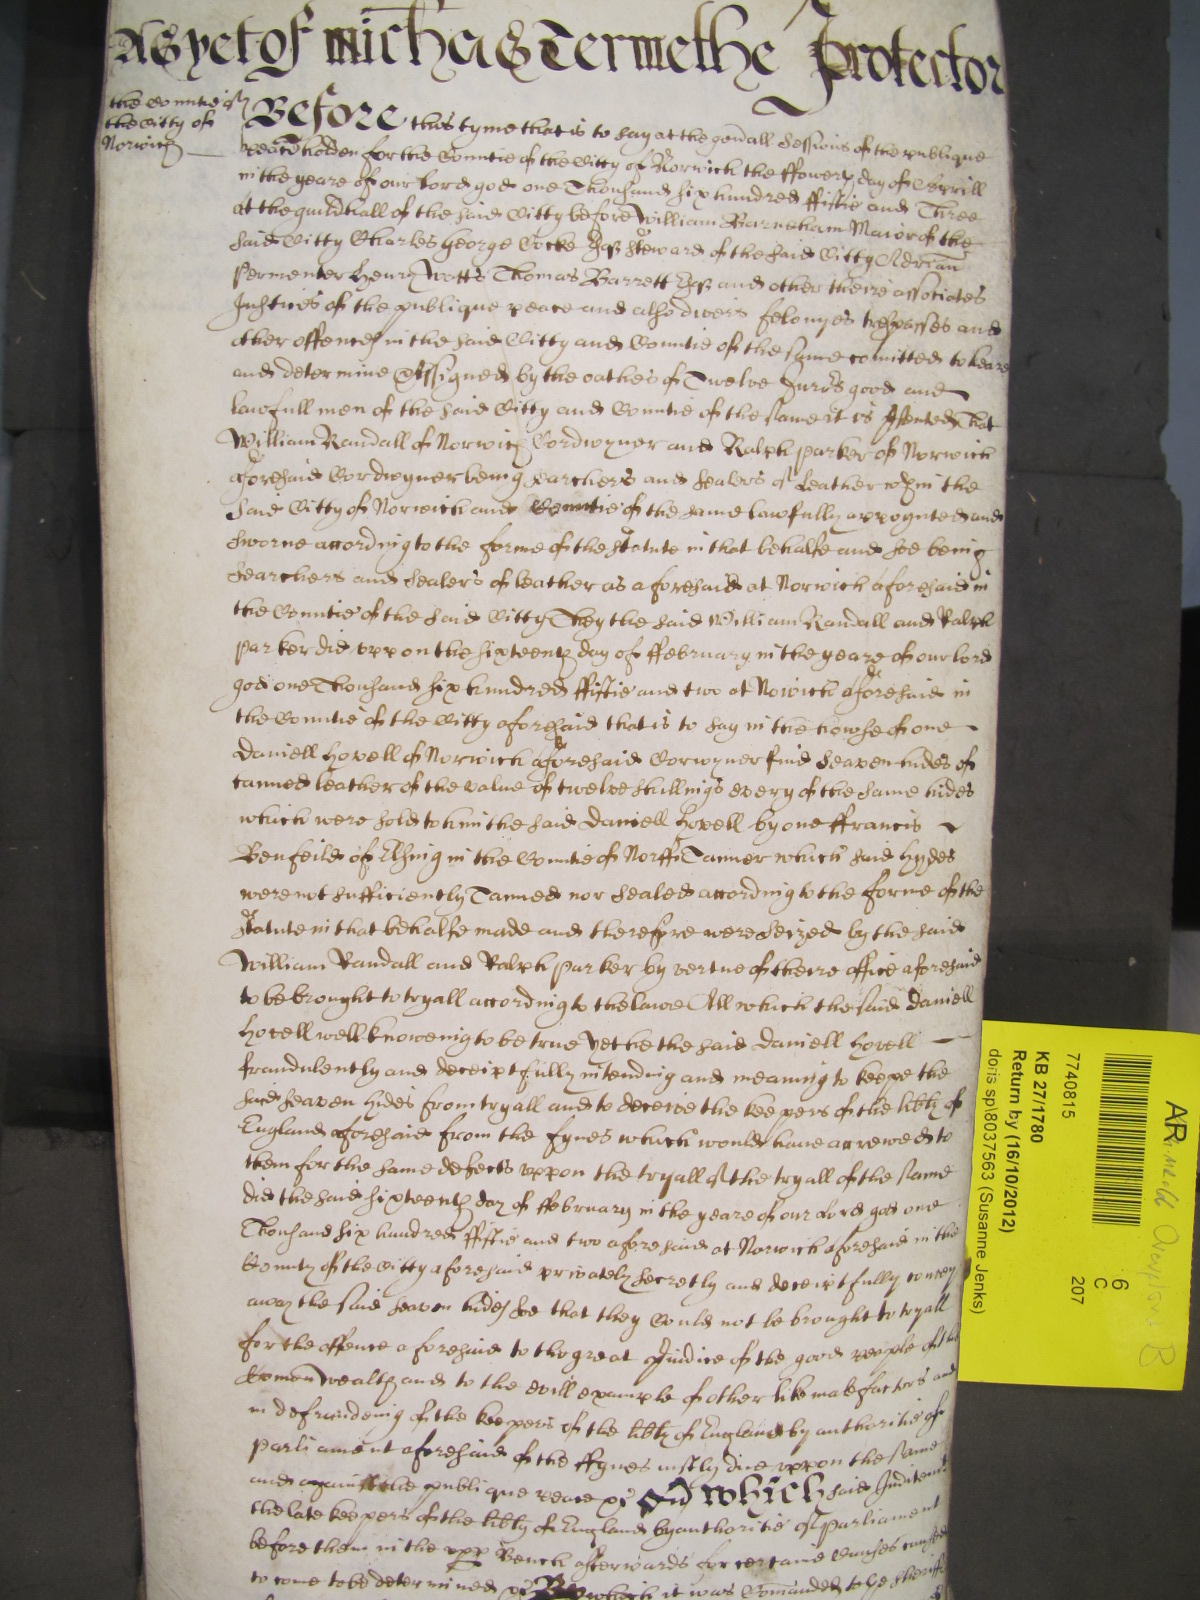 As yet of Mich'as Terme the Protector
the Countie of
the Citty of
Norwich
Before this tyme that is to say at the gen'all Sessions of the publique
peace holden for the Countie of the Citty of Norwich the ffowerth day of Aprill
in the yeare of our Lord god one Thousand six hundred ffiftie and Three
at the guildhall of the said Citty before William Barnham Maior of the
said Citty Charles George Cocke Esq Steward of the said Citty Adrian
Permenter Henry Watts Thomas Barrett Esq and other theire associates
Justices of the publique peace and also divers felonyes trespasses and
other offences in the said Citty and Countie of the same comitted to heare
and determine Assigned by the oathes of Twelve Jurors good and
lawfull men of the said Citty and Countie of the same it is p'sented That
William Randall of Norwich Cordwyner and Ralph Parker of Norwich
aforesaid Cordwyner being searchers and sealers of leather w'thin the
said Citty of Norwich and Countie of the same lawfully appoynted and
sworne according to the forme of the Statute in that behalfe and soe being
searchers and sealers of leather as aforesaid at Norwich aforesaid in
the Countie of the said Citty They the said William Randall and Ralph
Parker did uppon the sixteenth day of ffebruary in the yeare of our lord
god one Thousand six hundred ffiftie and two at Norwich aforesaid in
the Countie of the Citty aforesaid that is to say in the howse of one
Daniell Hovell of Norwich aforesaid Corwyner find seaven hides of
tanned leather of the value of twelve shillings every of the same hides
which were sold to him the said Daniell Hovell by one ffrancis
Benfeild of in the Countie of Norff Tanner which said hydes
were not sufficiently Tanned nor sealed according to the forme of the
Statute in that behalfe made and therefore were seized by the said
William Randall and Ralph Parker by vertue of theire office aforesaid
to be brought to tryall according to the lawe All which the said Daniell
Hovell well knoweing to be true yet he the said Daniell Hovell
fraudulently and deceiptfully intending and meaning to keepe the
said seaven hides from tryall and to deceive the keepers of the lib'ty of
England aforesaid from the fynes which would have accrewed to
them for the same defects uppon the tryall of the tryall of the same
did the said sixteenth day of ffebruary in the yeare of our Lord god one
Thousand six hundred ffiftie and two aforesaid at Norwich aforesaid in the
County of the Citty aforesaid privately secretly and deceiptfully convey
away the said seaven hides soe that they could not be brought to tryall
for the offence aforesaid to the great p'iudice of the good people of this
Comonwealth and to the evill example of other like malefactors and
in defrauding of the keepers of the lib'ty of England by authoritie of
Parliament aforesaid of the ffynes iustly due uppon the same
and against the publique peace &c which said Inditem't
the late keepers of the lib'ty of England by authoritie of Parliament
before them in the upp' Bench afterwards for certaine causes caused
to come to be determined &c it was Comanded to the Sheriffs
AR
6
C
207
7740815
KB 27/1780
Return by (16/10/2012)
doris sp\8037563 (Susanne Jenks)